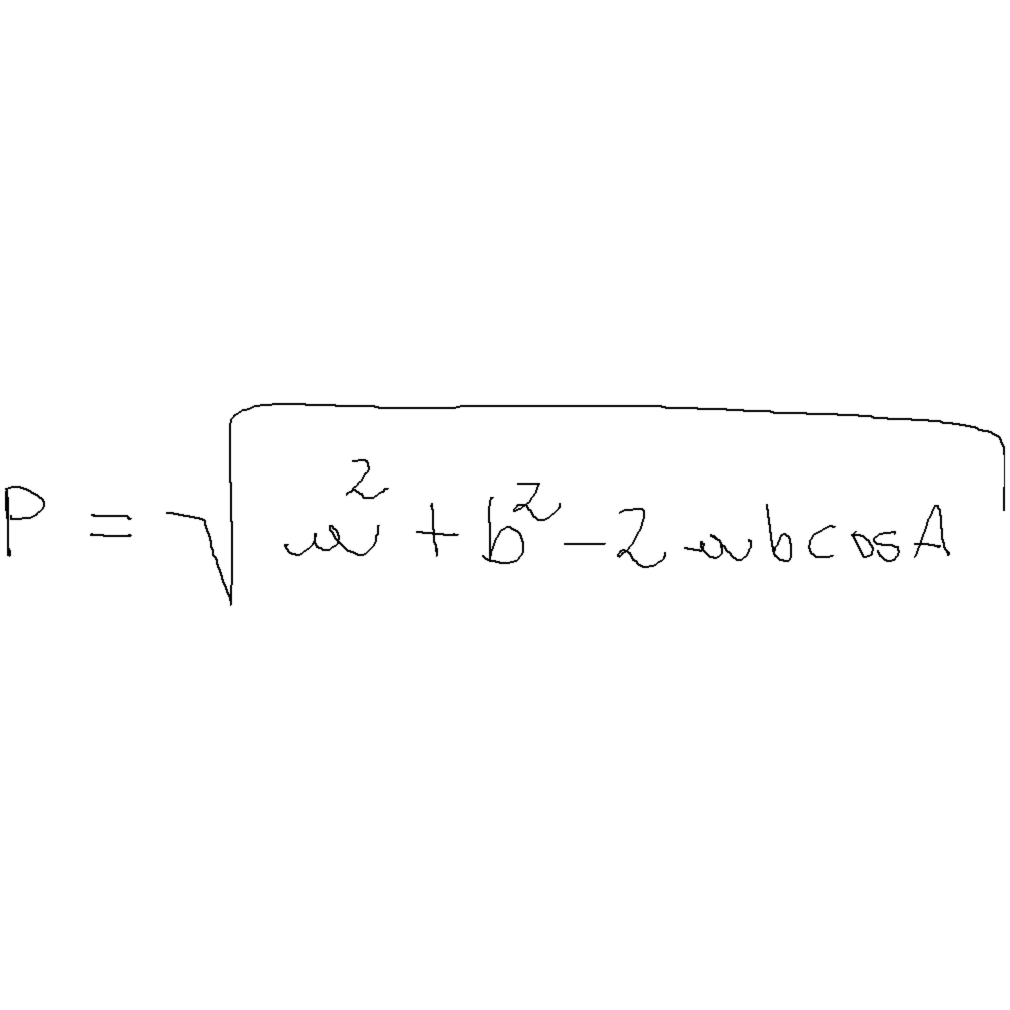 P = √(w² + b² - 2wb cos A)